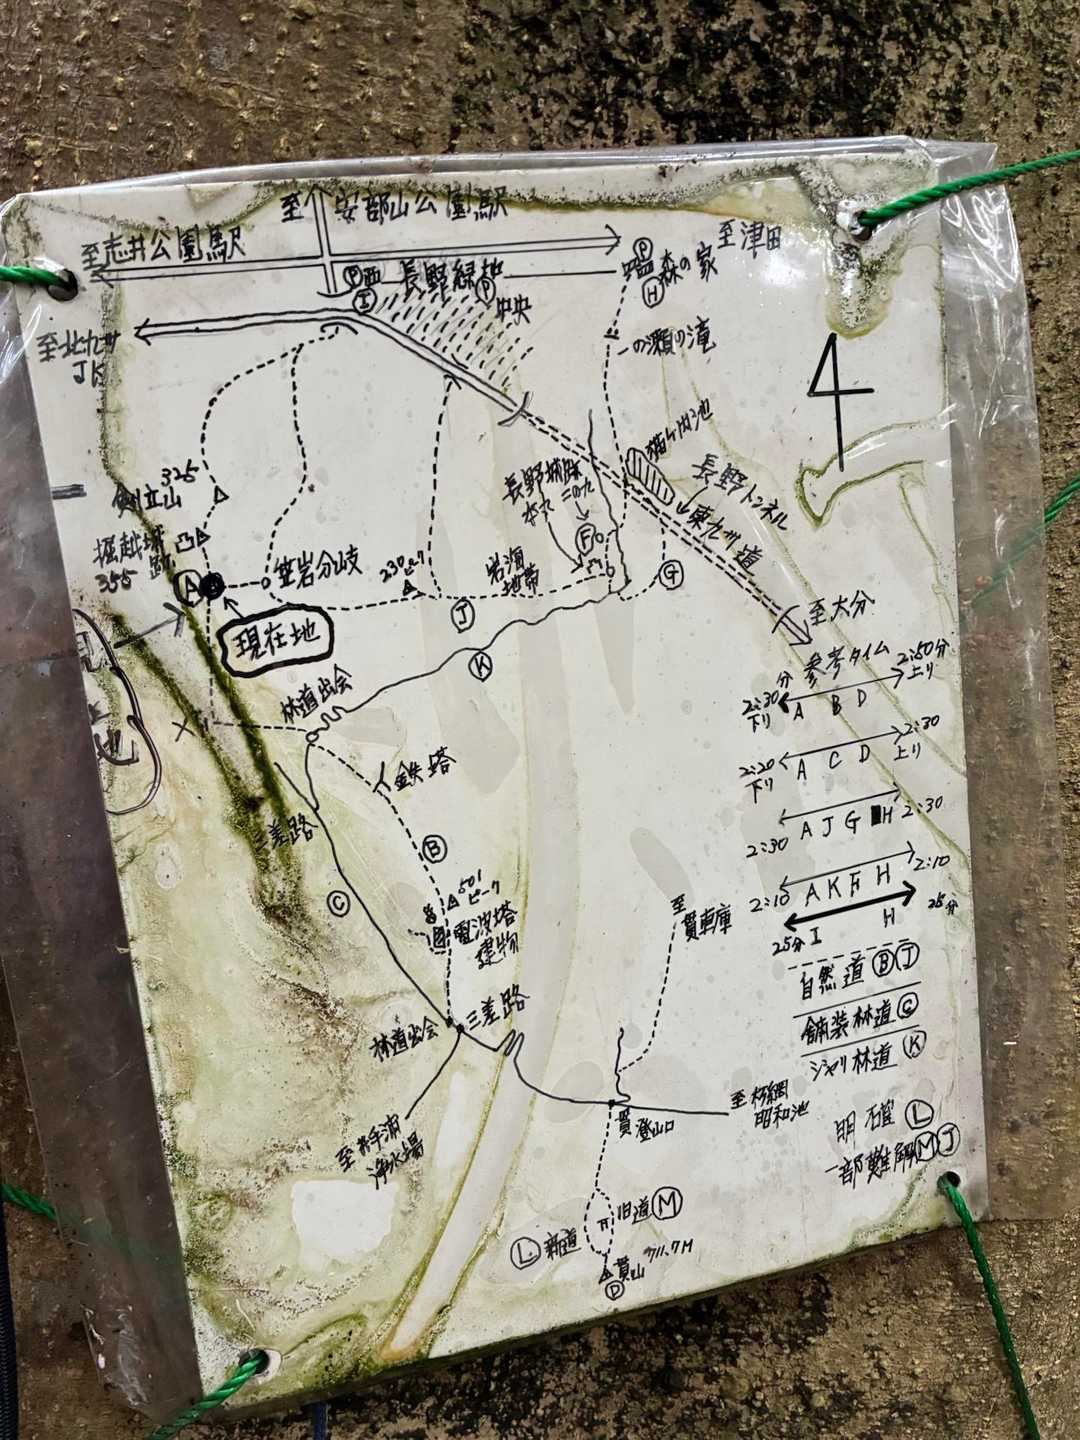 至 安部山公園駅
至志井公園駅
至津田
Ⓟ西
Ⓘ
長野緑地
Ⓟ
中央
Ⓟ
森の家
Ⓗ
至北九州
JK
一の瀬の滝
325
堀越城
跡
355
Ⓐ
現在地
笠岩分岐
230ピーク
岩海
地帯
長野城跡
本丸
二の丸
Ⓕ
Ⓖ
Ⓙ
Ⓚ
長野トンネル
東九州道
至大分
林道出会
鉄塔
三差路
Ⓑ
Ⓒ
501
ピーク
電波塔
建物
林道出会
三差路
至
浄水場
至
貫車庫
貫登山口
至朽網
昭和池
旧道Ⓜ
Ⓛ新道
貫山 711.7M
Ⓓ
4
参考タイム
2:30分 下り A B D 2:50分 上り
2:20 下り A C D 2:30 上り
2:30 A J G H 2:30
2:10 A K F H 2:10
25分 I H 25分
自然道ⒷⒿ
舗装林道Ⓒ
ジャリ林道Ⓚ
明確Ⓛ
一部難解ⓂⒿ